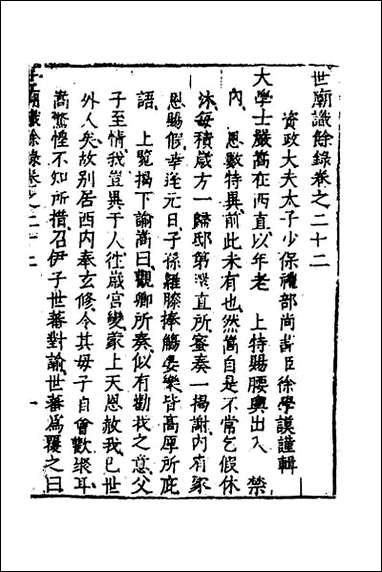 世廟識餘錄卷之二十二
資政大夫太子少保禮部尚書臣徐學謨謹輯
大學士嚴嵩在西直以年老 上特賜腰輿出入 禁
內 恩數特異前此未有也然嵩自是不常乞假休
沐每積歲方一歸邸第還直所密奏一揭謝內有家
恩賜假幸逢元日子孫羅膝捧觴宴樂皆高厚所庇
語 上覧揭下諭嵩曰觀卿所奏似有勸我之意父
子至情我豈異于人徃歲宮變蒙上天恩赦我已世
外人矣故别居西内奉玄修令其母子自會歡聚耳
嵩驚悸不知所措召伊子世蕃對諭世蕃爲覆之曰
世廟識餘錄卷之二十二 一